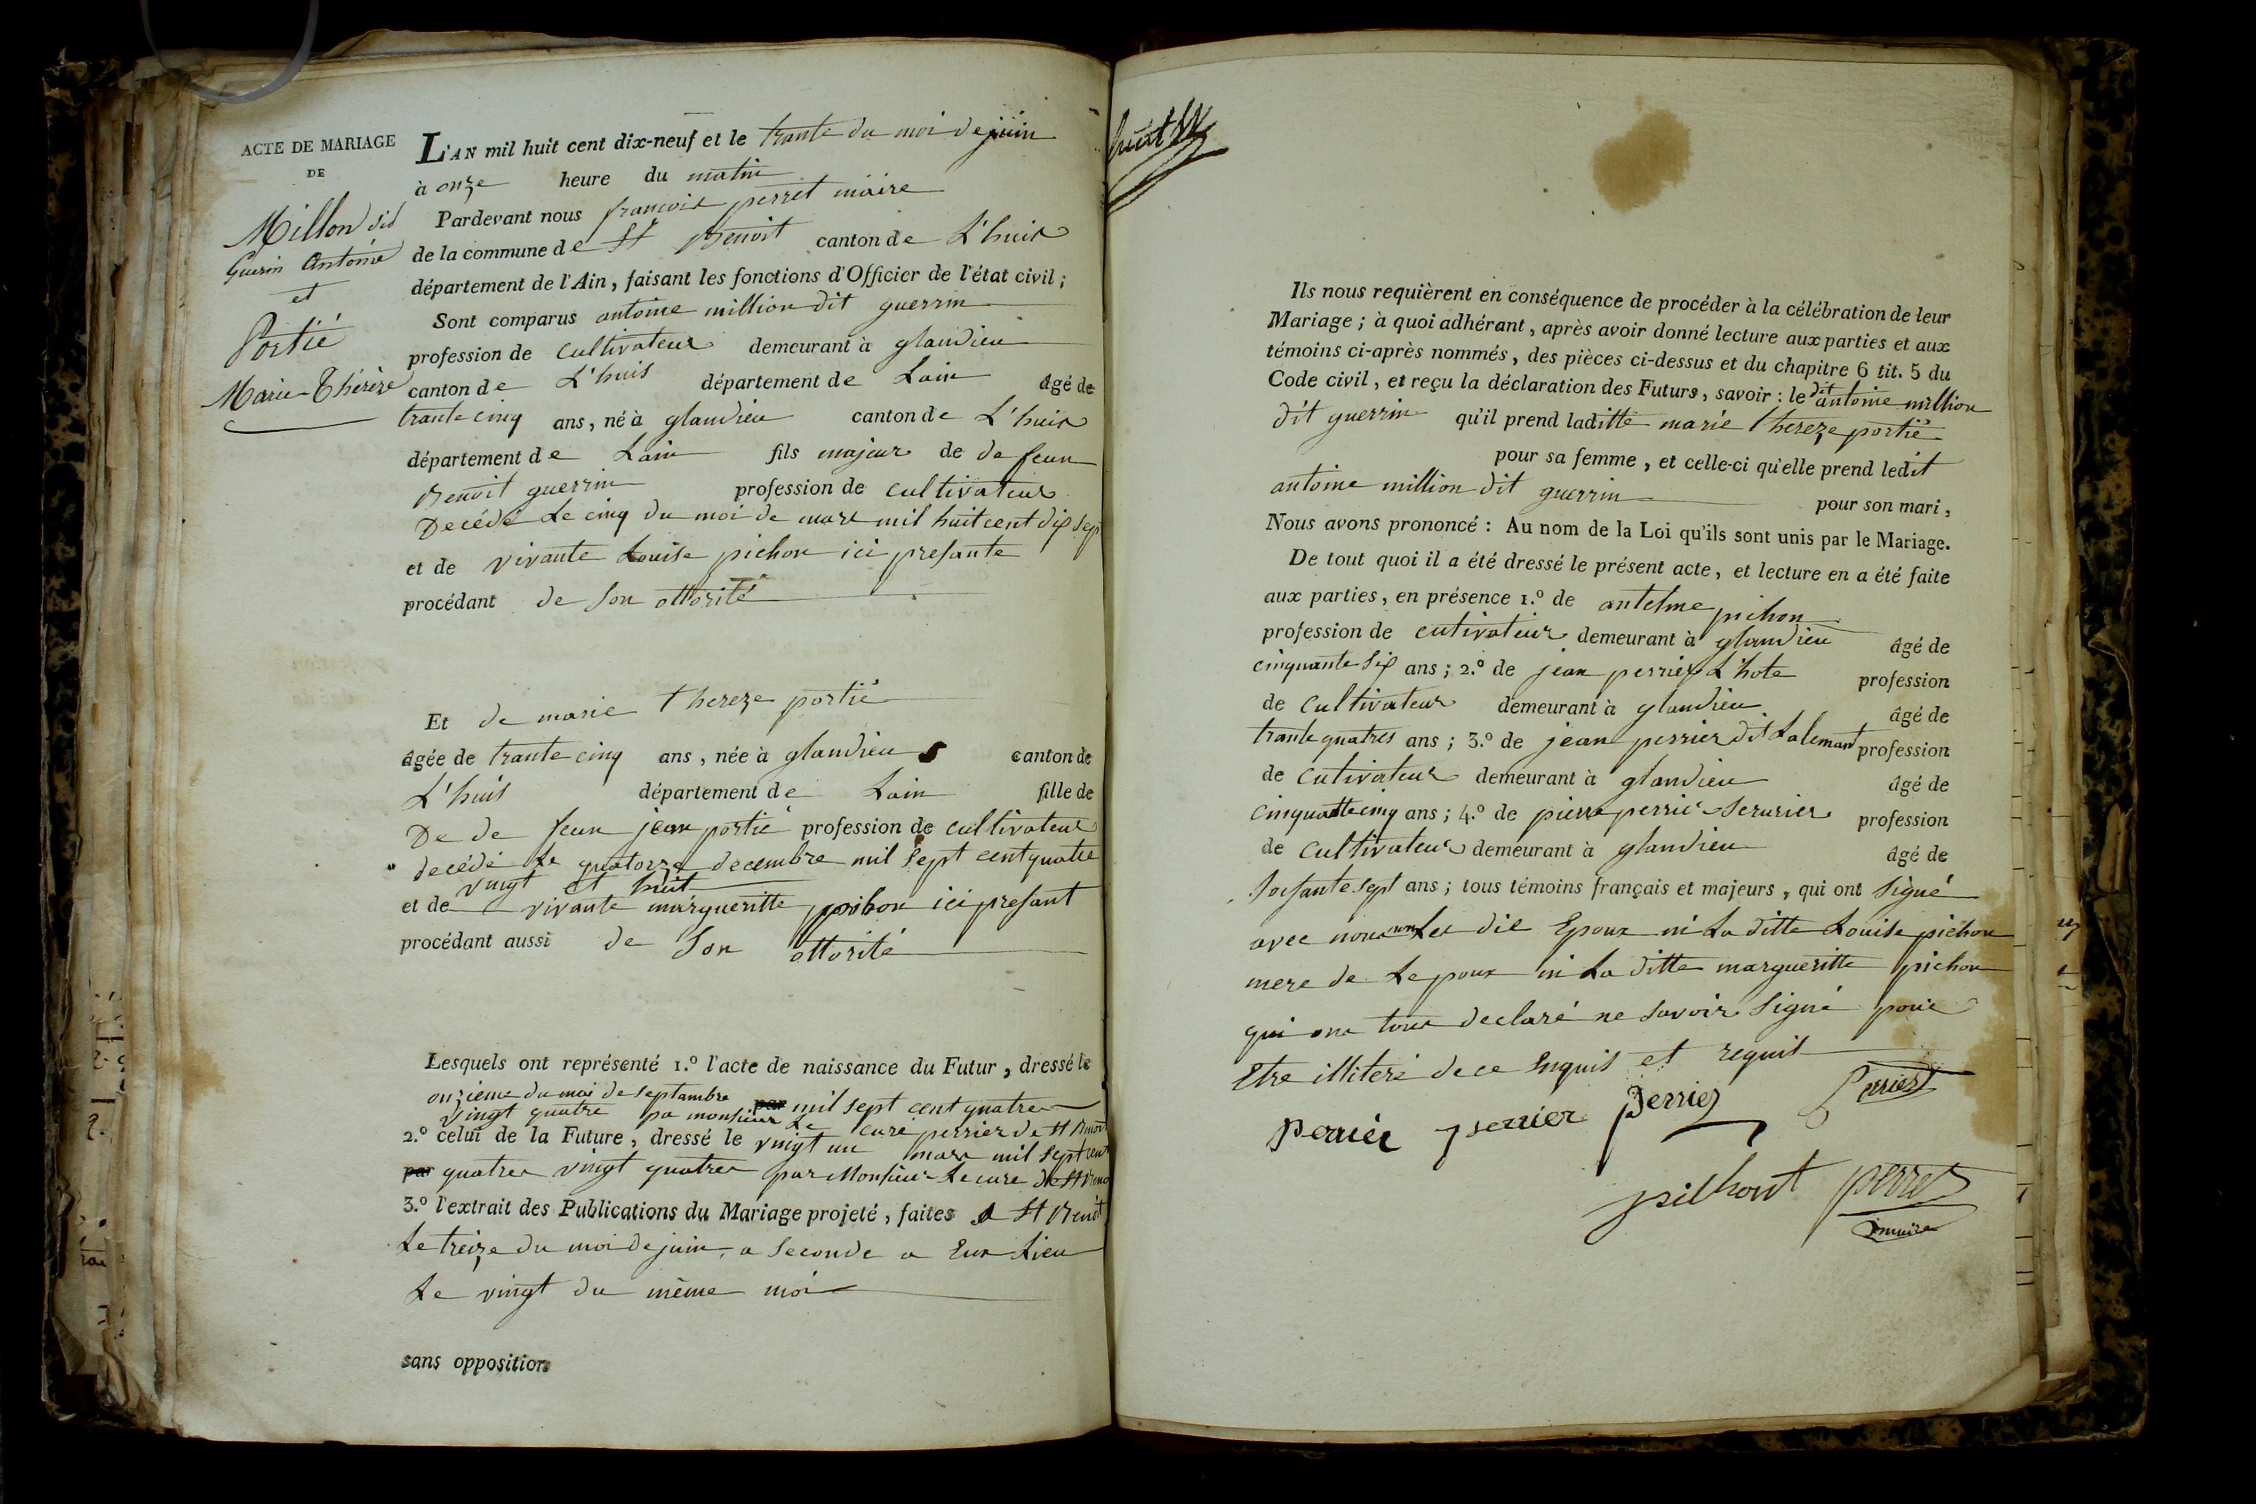 ACTE DE MARIAGE
DE
Millon dit
Guerin Antoine
et
Portié
Marie-Thérèze
L'AN mil huit cent dix-neuf et le trante du moi de juin
à onze heure du matin
Pardevant nous francois perret maire
de la commune de St Benoit canton de L'huis
département de l'Ain, faisant les fonctions d'Officier de l'état civil;
Sont comparus antoine million dit guerrin
profession de cultivateur demeurant à glandieu
canton de L'huis département de Lain âgé de
trante cinq ans, né à glandieu canton de L'huis
département de Lain fils majeur de de feun
Benoit guerrin profession de cultivateur
Decédé Le cinq du moi de mars mil huit cent dix sept
et de vivante Louise pichon ici presante
procédant de son ottorité
Et de marie thereze portié
âgée de trante cinq ans, née à glandieu canton de
L'huis département de Lain fille de
De de feun jean portié profession de cultivateur
decédé Le quatorze decembre mil sept cent quatre
vingt et huit
et de vivante margueritte pichon ici presant
procédant aussi de Son ottorité
Lesquels ont représenté 1.º l'acte de naissance du Futur, dressé le
onzieme du moi de septambre par mil sept cent quatre
vingt quatre pa monsieur Le cure perrier de St Benoit
2.º celui de la Future, dressé le vingt un mars mil sept cent
par quatre vingt quatre par Monsieur Le cure de St Benoi
3.º l'extrait des Publications du Mariage projeté, faites a St Benoit
Le treize du moi de juin, a Seconde a Eux Lieu
Le vingt du même moi
sans opposition
Ils nous requièrent en conséquence de procéder à la célébration de leur
Mariage; à quoi adhérant, après avoir donné lecture aux parties et aux
témoins ci-après nommés, des pièces ci-dessus et du chapitre 6 tit. 5 du
Code civil, et reçu la déclaration des Futurs, savoir: le dit antoine million
dit guerrin qu'il prend laditte marie thereze portié
pour sa femme, et celle-ci qu'elle prend ledit
antoine million dit guerrin pour son mari,
Nous avons prononcé: Au nom de la Loi qu'ils sont unis par le Mariage.
De tout quoi il a été dressé le présent acte, et lecture en a été faite
aux parties, en présence 1.º de antelme pichon
profession de cutivateur demeurant à glandieu âgé de
cinquante six ans; 2.º de jean perrier L'hote profession
de cultivateur demeurant à glandieu âgé de
trante quatres ans; 3.º de jean perrier dit Lalemant profession
de cutivateur demeurant à glandieu âgé de
cinquatte cinq ans; 4.º de pierre perrié Serurier profession
de cultivateur demeurant à glandieu âgé de
soisante sept ans; tous témoins français et majeurs, qui ont Signé
avec nous non Les dit Epoux ni La ditte Louise pichon
mere de Lepoux ni La ditte margueritte pichon
qui ons tous declaré ne Savoir Signé pour
Etre illiteré de ce Enquis et requis
perrier perrier perrier Perrier
pilhont perret
maire